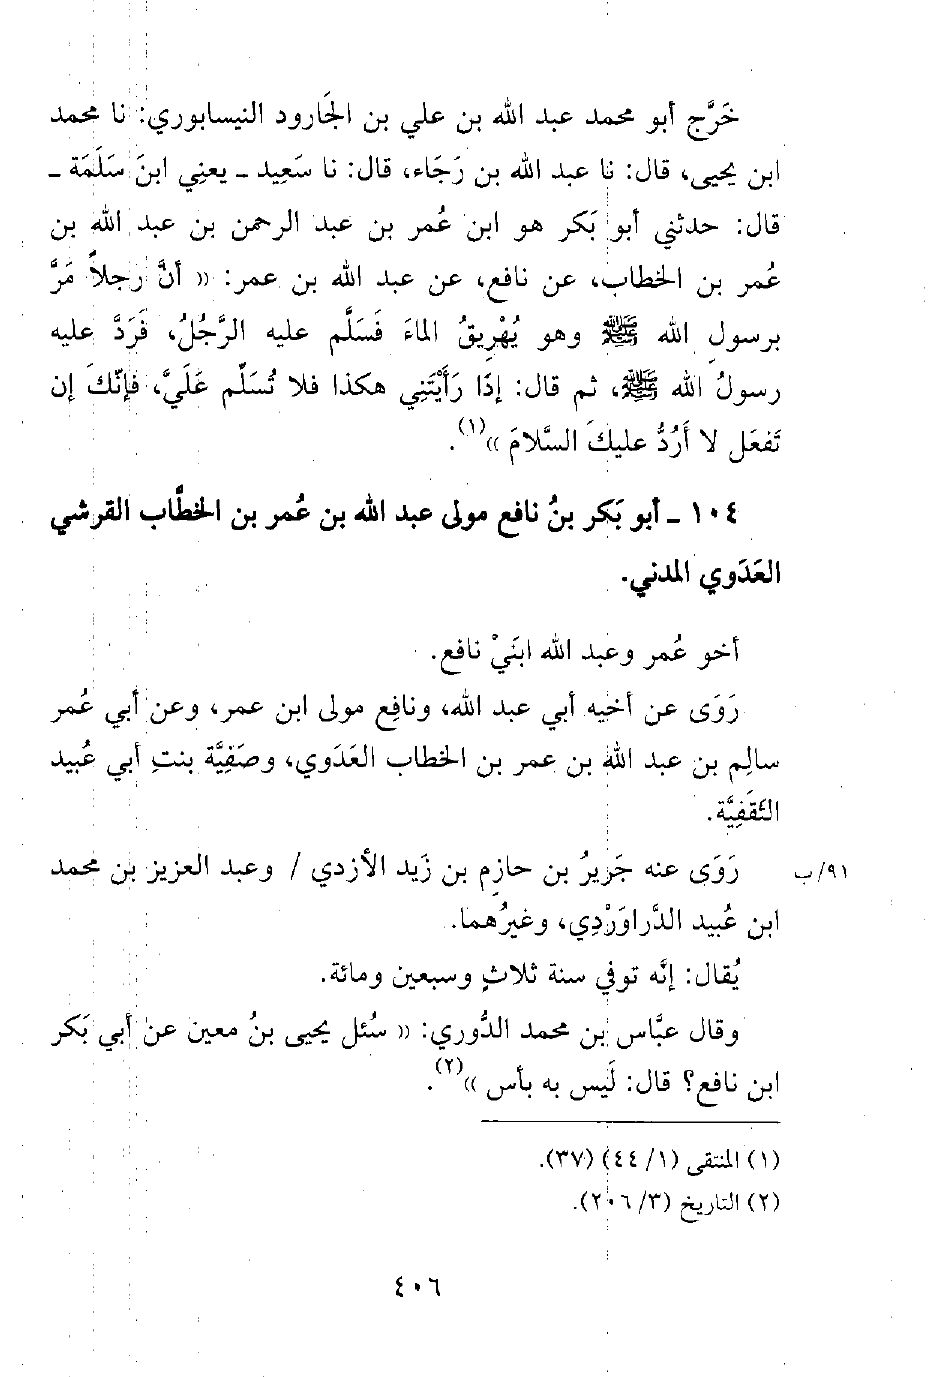 خَرَّج أبو محمد عبد الله بن علي بن الجَارود النيسابوري: نا محمد
ابن يحيى، قال: نا عبد الله بن رَجَاء، قال: نا سَعِيد ـ يعنِي ابنَ سَلَمَة ـ
قال: حدثني أبو بَكر هو ابن عُمر بن عبد الرحمن بن عبد الله بن
عُمر بن الخطاب، عن نافع، عن عبد الله بن عمر: « أنَّ رجلاً مَرَّ
برسولِ الله ﷺ وهو يُهْرِيقُ الماءَ فَسَلَّم عليه الرَّجُلُ، فَرَدَّ عليه
رسولُ الله ﷺ، ثم قال: إذَا رَأَيْتَنِي هكذا فلا تُسَلّم عَلَيَّ، فإنّكَ إن
تَفعَل لا أَرُدُّ عليكَ السَّلامَ »(١).
١٠٤ ـ أبو بَكر بنُ نافع مولى عبد الله بن عُمر بن الخطَّاب القرشي
العَدَوي المدني.
أخو عُمر وعبد الله ابنَيْ نافع.
رَوَى عن أخيه أبي عبد الله، ونافِع مولى ابن عمر، وعن أبي عُمر
سالِم بن عبد الله بن عمر بن الخطاب العَدَوي، وصَفِيَّة بنتِ أبي عُبيد
الثقَفِيَّة.
رَوَى عنه جَريرُ بن حازِم بن زَيد الأزدي / وعبد العزيز بن محمد
٩١/ب
ابن عُبيد الدَّراوَرْدِي، وغيرُهما.
يُقال: إنَّه توفي سنة ثلاثٍ وسبعين ومائة.
وقال عبَّاس بن محمد الدُّوري: « سُئل يحيى بنُ معين عن أبي بَكر
ابن نافع؟ قال: لَيس به بأس »(٢).
(١) المنتقى (١/ ٤٤) (٣٧).
(٢) التاريخ (٣/ ٢٠٦).
٤٠٦